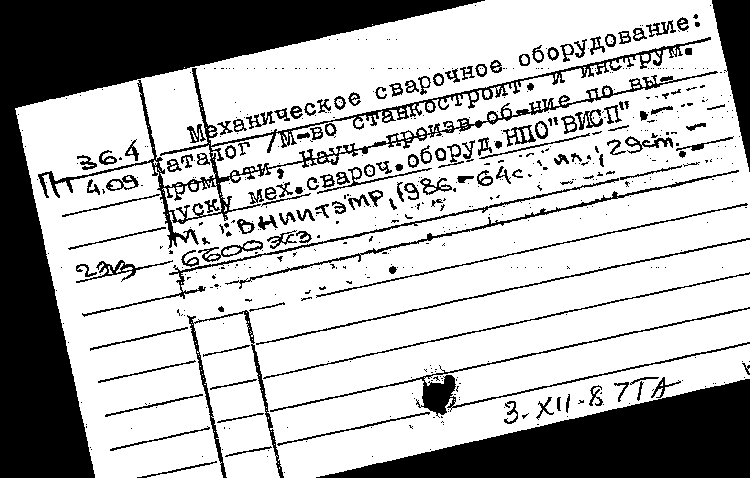 Механическое сварочное оборудование:
36.4 Каталог /М-во станкостроит. и инструм.
ПТ 4.09 пром-сти, Науч.-произв.об-ние по вы-
пуску мех.свароч.оборуд.НПО"ВИСП" .-
М. : ВНИИТЭМР, 1986.- 64с. : ил.; 29см. -
6600 экз.
2экз
3-XII-87